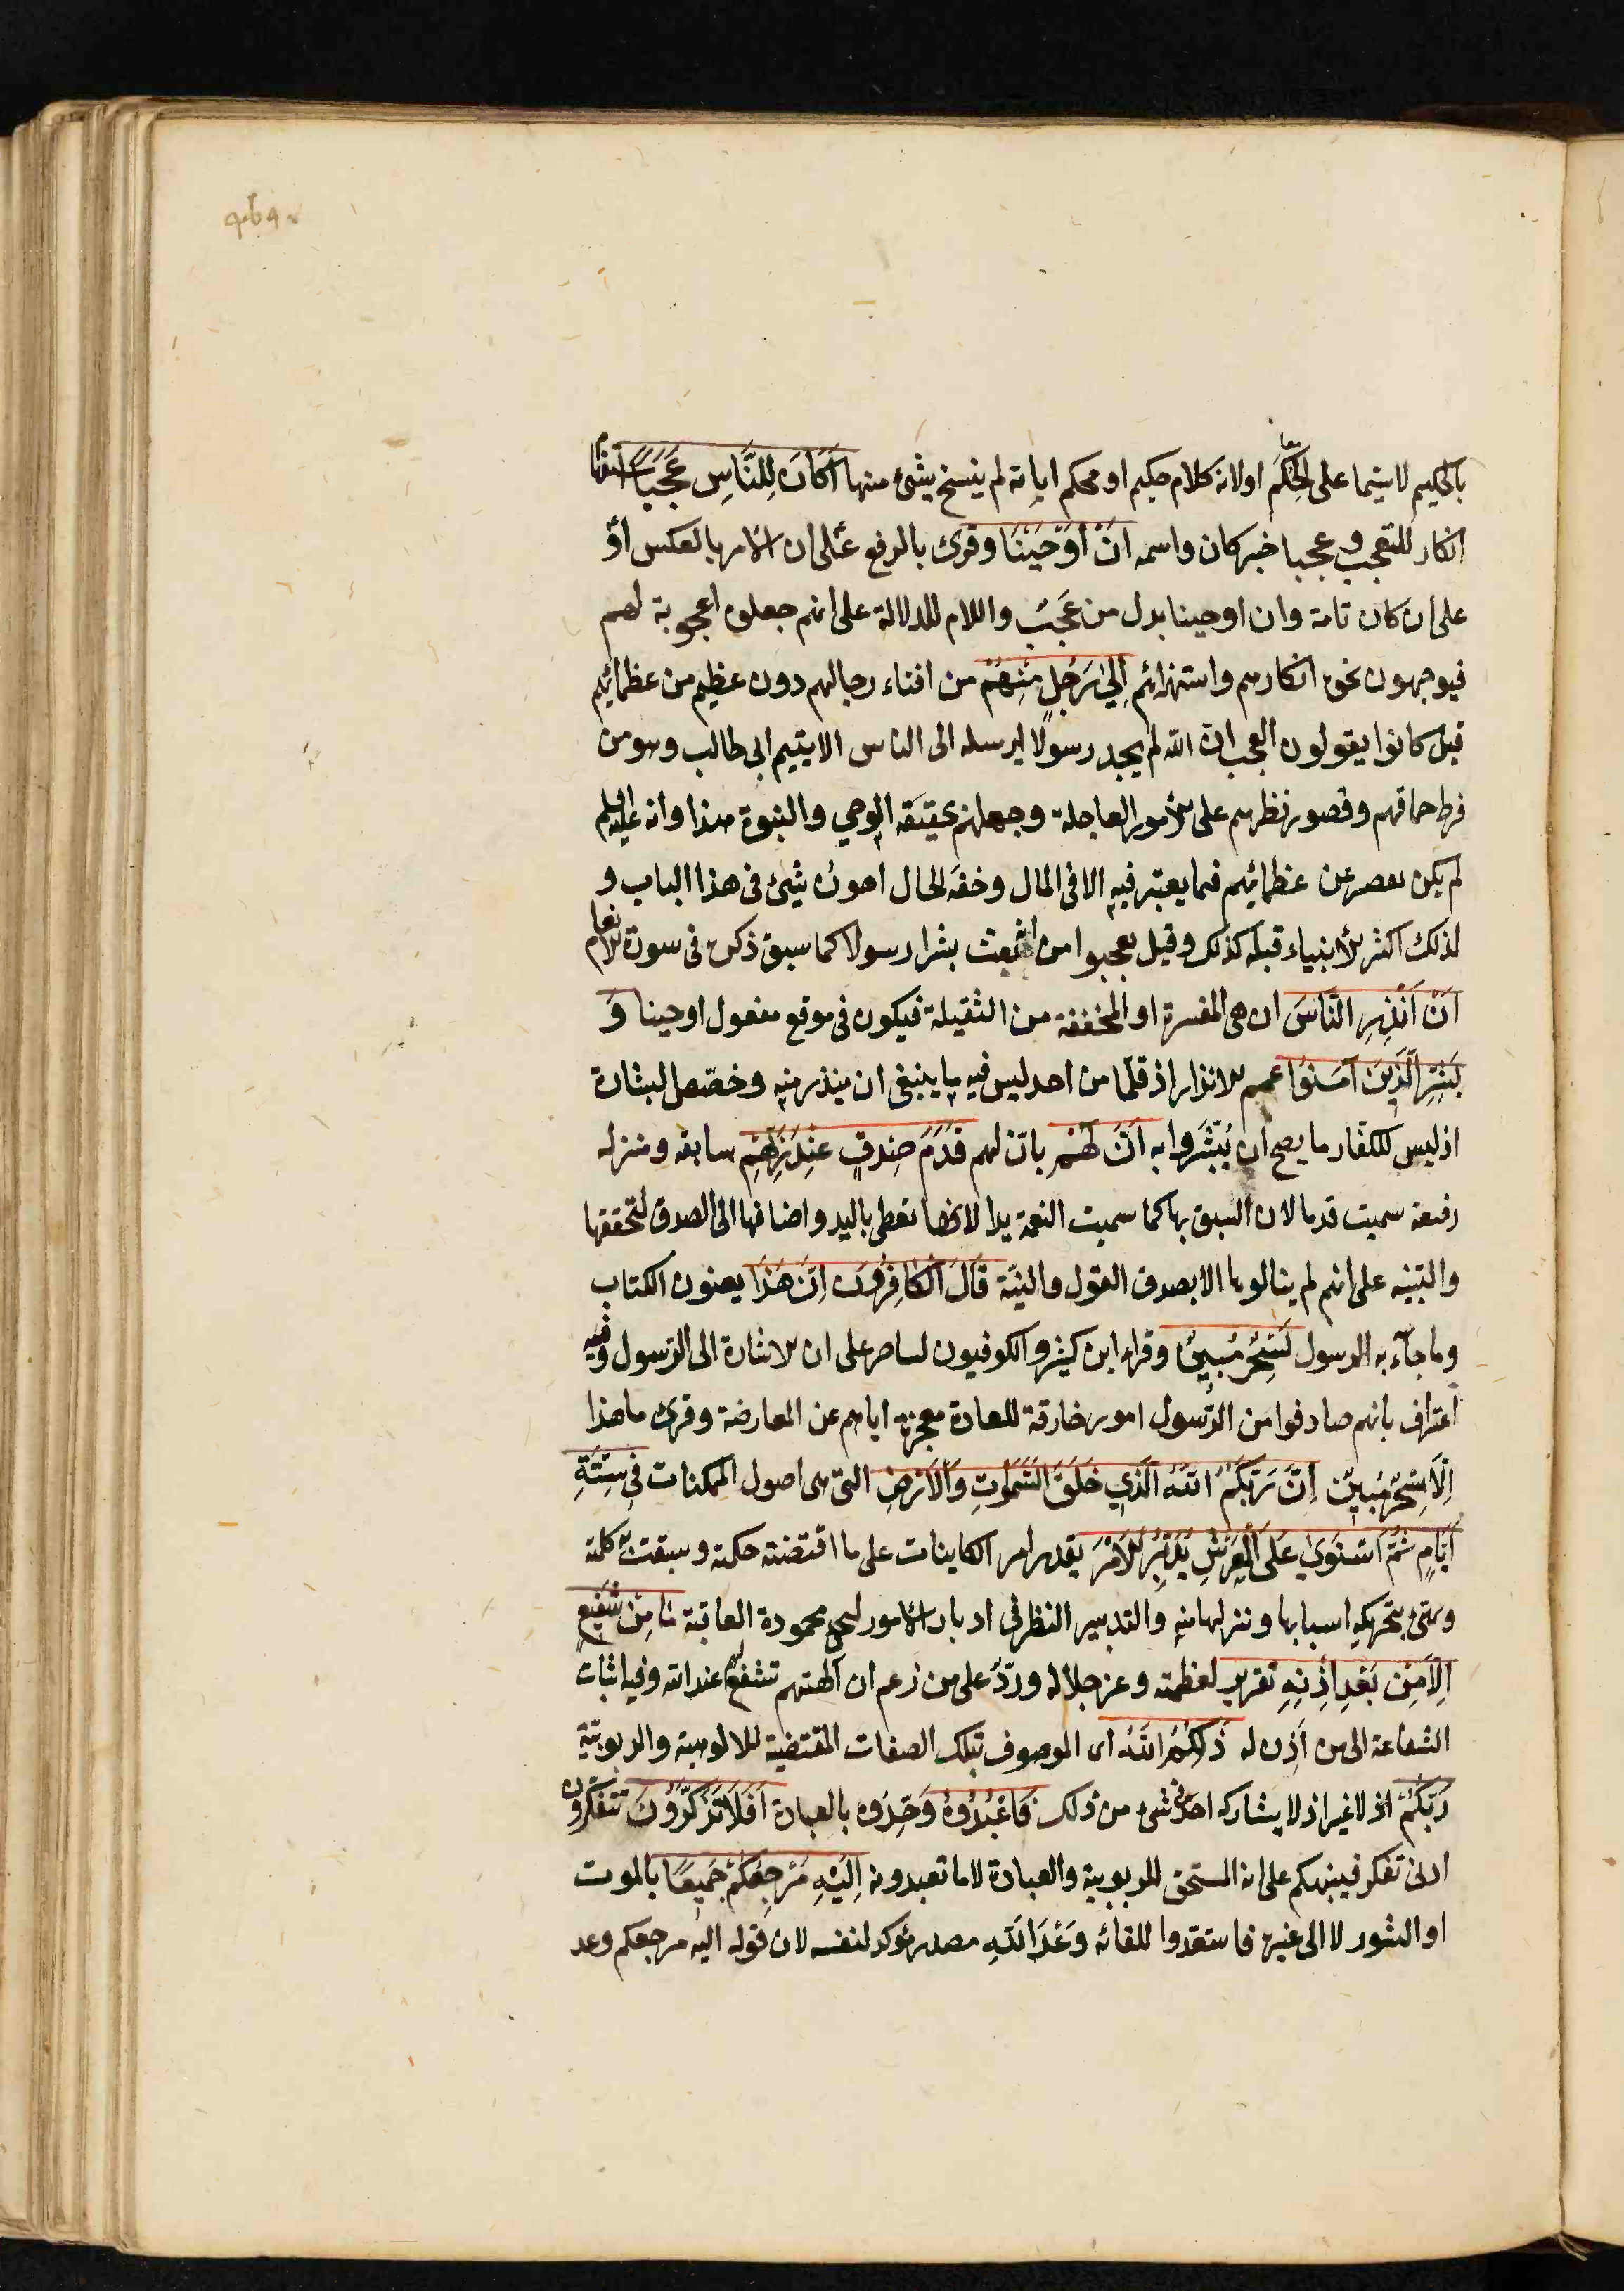 بالحكيم لاشتماله على الحكم اولانه كلام حكيم او محكم اياته لم ينسخ بشئ منها اَكَانَ لِلنَّاسِ عَجَبًا استفهام
انكار للتعجب وعجبا خبر كان واسمه اَنْ اَوْحَيْنَا وقرئ بالرفع على ان الامر بالعكس اوْ
على ان كان تامة وان اوحينا بدل من عَجَبٌ واللام للدلالة على انهم جعلوه اعجوبة لهم
فيوجهون نحوه انكارهم واستهزائهم اِلٰى رَجُلٍ مِنْهُمْ من افناء رجالهم دون عظيم من عظمائهم
قيل كانوا يقولون العجب ان الله لم يجد رسولا يرسله الى الناس الا يتيم ابى طالب وهو من
فرط حماقتهم وقصور نظرهم على الامور العاجلة وجهلهم بحقيقة الوحى والنبوة هذا وانه عليه السلم
لم يكن يقصر عن عظمائهم فيما يعتبر فيه الا فى المال وخفة الحال اهون شئ فى هذا الباب و
لذلك اكثر الانبياء قبله كذلك وقيل تعجبوا من انه بعث بشرا رسولا كما سبق ذكره فى سورة الانعام
اَنْ اَنْذِرِ النَّاسَ ان هى المفسرة او المخففة من الثقيلة فيكون فى موقع مفعول اوحينا وَ
بَشِّرِ الَّذِينَ آمَنُوا عمم الانذار اذ قلّما من احد ليس فيه ما ينبغى ان ينذر منه وخصّص البشارة
اذ ليس للكفّار ما يصح ان يُبَشَّروا به اَنَّ لَهُمْ بانّ لهم قَدَمَ صِدْقٍ عِنْدَ رَبِّهِمْ سابقة ومنزلة
رفيعة سميت قدما لان السبق بها كما سميت النعمة يدا لانها تعطى باليد واضافتها الى الصدق لتحققها
والتنبيه على انهم لم ينالوها الا بصدق القول والنيّة قَالَ الْكَافِرُونَ اِنَّ هٰذَا يعنون الكتاب
وما جآء به الرسول لَسِحْرٌ مُبِينٌ وقراء ابن كثير والكوفيون لساحر على ان الاشارة الى الرّسول وفيه
اعتراف بانهم صادفوا من الرّسول امورا خارقة للعادة معجزة اياهم عن المعارضة وقرئ ما هذا
اِلَّا سِحْرٌ مُبِينٌ اِنَّ رَبَّكُمُ اللّٰهُ الَّذِي خَلَقَ السَّمٰوَاتِ وَالْاَرْضَ التى هى اصول الممكنات فِي سِتَّةِ
اَيَّامٍ ثُمَّ اسْتَوٰى عَلَى الْعَرْشِ يُدَبِّرُ الْاَمْرَ يقدر امر الكاينات على ما اقتضته حكمته وسبقت به كلمته
ويهيّئ بتحريكه اسبابها وننزلها منه والتدبير النظر فى ادبار الامور لتجئ محمودة العاقبة مَا مِنْ شَفِيعٍ
اِلَّا مِنْ بَعْدِ اِذْنِهِ تقرير لعظمته وعز جلاله وردّ على من زعم ان آلهتهم تشفع لهم عند الله وفيه اثبات
الشفاعة الى من اَذِن له ذٰلِكُمُ اللّٰهُ اى الموصوف بتلك الصفات المقتضية للالوهية والربوبيّة
رَبُّكُمْ اذ لا غير اذ لا يشاركه احد فى شئ من ذلك فَاعْبُدُوهُ وَحّدُوه بالعبادة اَفَلَا تَذَكَّرُونَ تتفكرون
ادنى تفكر فينبهكم على انه المستحق للربوبية والعبادة لا ما تعبدونه اِلَيْهِ مَرْجِعُكُمْ جَمِيعًا بالموت
او النشور لا الى غيره فاستعدّوا للقائه وَعْدَ اللّٰهِ مصدر مؤكد لنفسه لان قوله اليه مرجعكم وعد